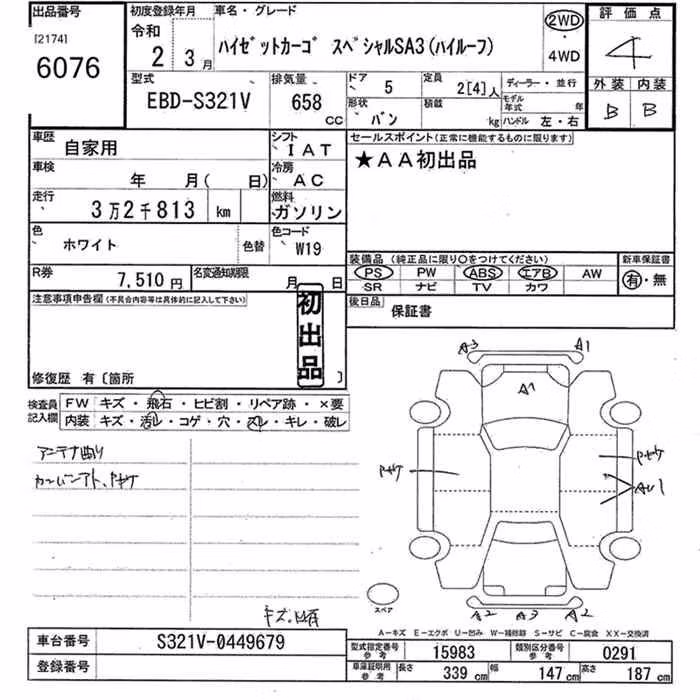 出品番号
[2174]
6076
初度登録年月
令和
2 3月
車名・グレード
ハイゼットカーゴ スペシャルSA3(ハイルーフ)
2WD
・
4WD
評価点
4
外装 内装
B B
型式
EBD-S321V
排気量
658
CC
ドア
5
形状
バン
定員
2[4]人
積載
kg
ディーラー・並行
モデル年式 年
ハンドル 左・右
車歴
自家用
シフト
IAT
車検
年 月( 日)
冷房
AC
走行
3万2千813 km
燃料
ガソリン
色
ホワイト
色替
色コード
W19
R券
7,510円
名変通知期限
月 日
セールスポイント(正常に機能するものに限ります)
★AA初出品
装備品(純正品に限り○をつけてください)
PS PW ABS エアB AW
SR ナビ TV カワ
新車保証書
有・無
後日品
保証書
注意事項申告欄(不具合内容等は具体的に記入して下さい)
初出品
修復歴 有〔箇所 〕
検査員記入欄
FW キズ・飛石・ヒビ割・リペア跡・×要
内装 キズ・汚レ・コゲ・穴・スレ・キレ・破レ
アンテナ曲り
A3 A1
A1
A2 A3 A2
スペア
A-キズ E-エクボ U-凹み W-補修跡 S-サビ C-腐食 XX-交換済
車台番号
S321V-0449679
登録番号
型式指定番号
参考
15983
類別区分番号
参考
0291
車庫証明用
参考
長さ 339 cm 幅 147 cm 高さ 187 cm